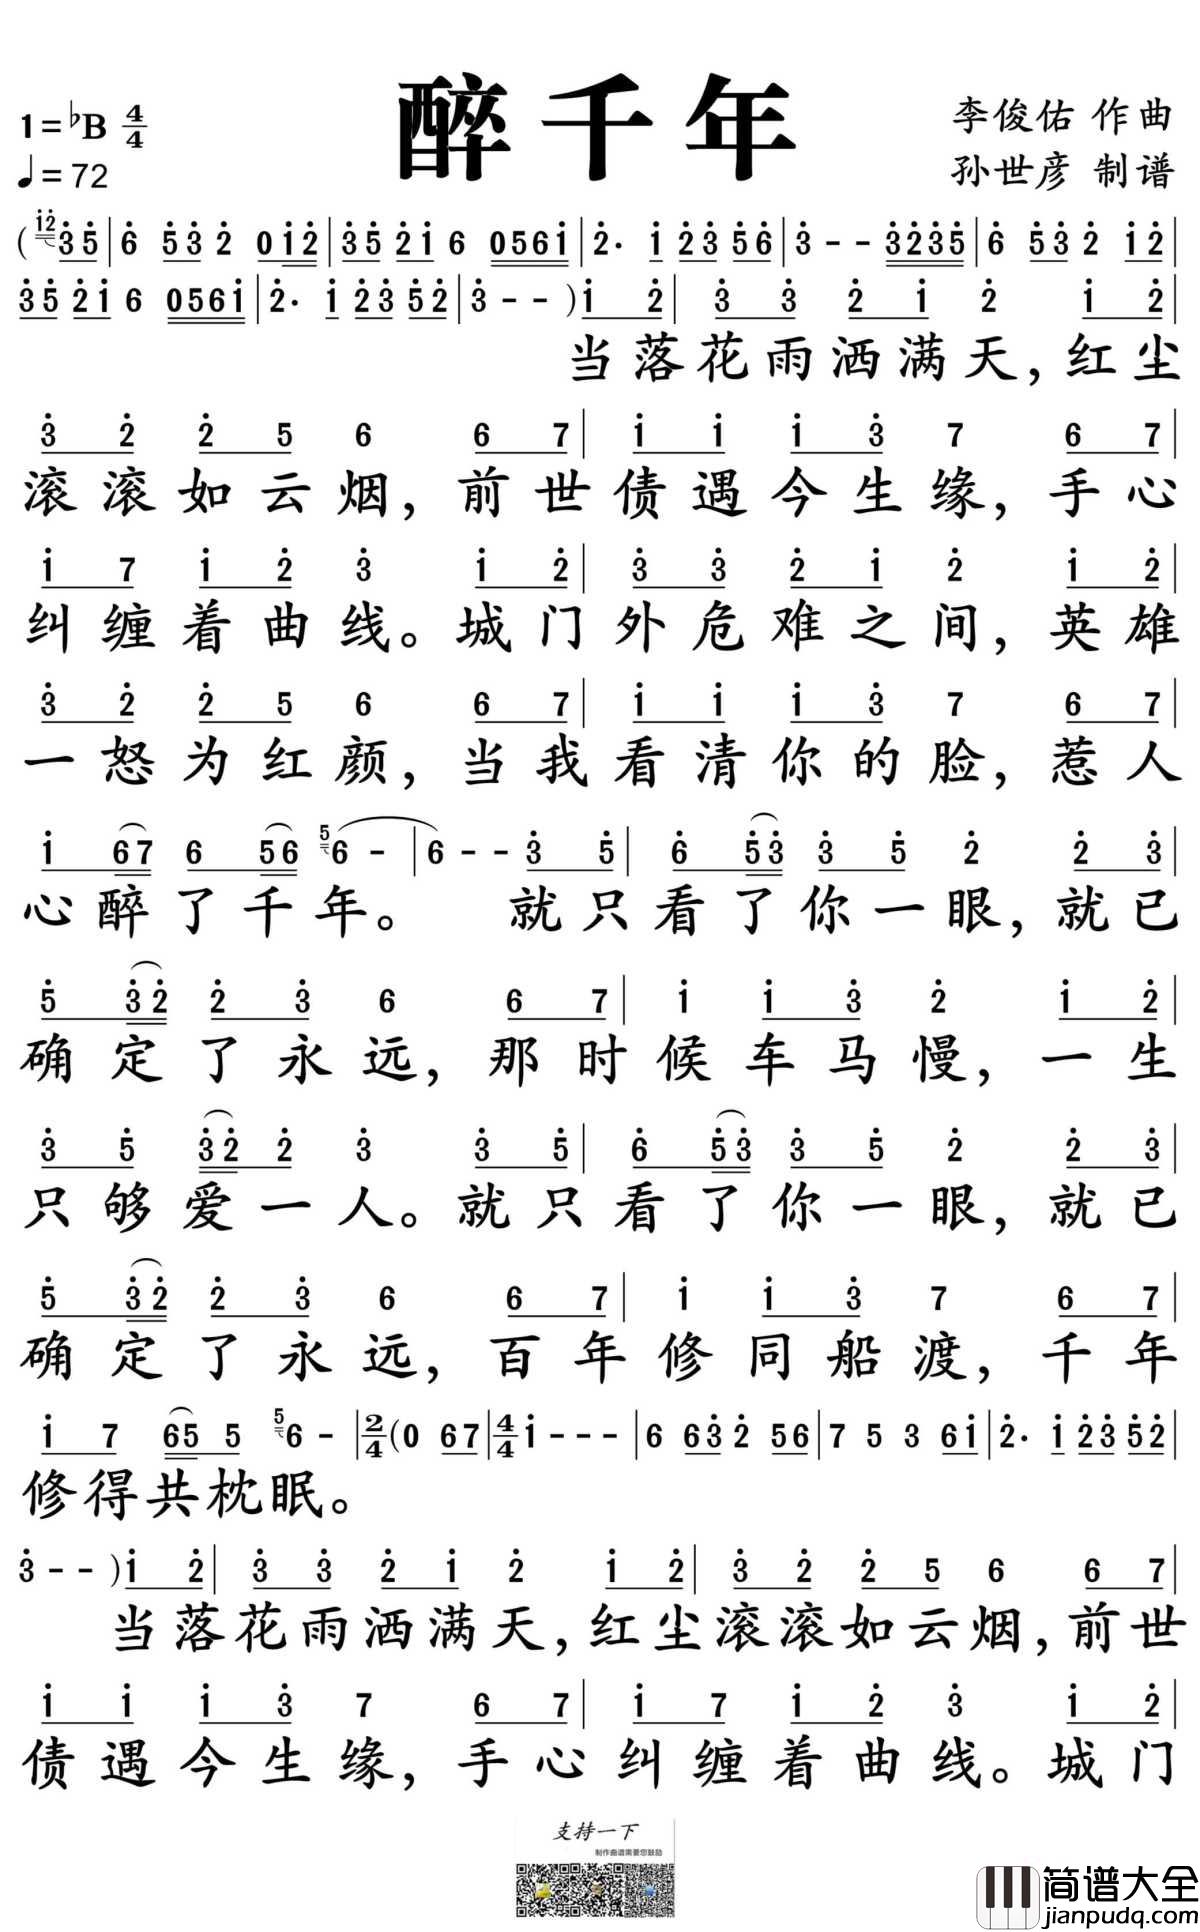 醉千年
1=♭B 4/4
♩=72
李俊佑 作曲
孙世彦 制谱
(1̇2̇ 3̇5̇|6̇ 5̇3̇ 2̇ 01̇2̇|3̇5̇ 2̇1̇ 6 0561̇|2̇· 1̇ 2̇3̇ 5̇6̇|3̇ - - 3̇2̇3̇5̇|6̇ 5̇3̇ 2̇ 1̇2̇|
3̇5̇ 2̇1̇ 6 0561̇|2̇· 1̇ 2̇3̇ 5̇2̇|3̇ - - )1̇ 2̇|3̇ 3̇ 2̇ 1̇ 2̇ 1̇ 2̇|
当落花雨洒满天,红尘
3̇ 2̇ 2̇ 5 6 6 7|1̇ 1̇ 1̇ 3̇ 7 6 7|
滚滚如云烟,前世债遇今生缘,手心
1̇ 7 1̇ 2̇ 3̇ 1̇ 2̇|3̇ 3̇ 2̇ 1̇ 2̇ 1̇ 2̇|
纠缠着曲线。城门外危难之间,英雄
3̇ 2̇ 2̇ 5 6 6 7|1̇ 1̇ 1̇ 3̇ 7 6 7|
一怒为红颜,当我看清你的脸,惹人
1̇ 67 6 56 5 6 -|6 - - 3̇ 5̇|6̇ 5̇3̇ 3̇ 5̇ 2̇ 2̇ 3̇|
心醉了千年。 就只看了你一眼,就已
5̇ 3̇2̇ 2̇ 3̇ 6 6 7|1̇ 1̇ 3̇ 2̇ 1̇ 2̇|
确定了永远,那时候车马慢,一生
3̇ 5̇ 3̇2̇ 2̇ 3̇ 3̇ 5̇|6̇ 5̇3̇ 3̇ 5̇ 2̇ 2̇ 3̇|
只够爱一人。就只看了你一眼,就已
5̇ 3̇2̇ 2̇ 3̇ 6 6 7|1̇ 1̇ 3̇ 7 6 7|
确定了永远,百年修同船渡,千年
1̇ 7 65 5 5 6 -|2/4(0 67|4/4 1̇ - - -|6 63̇ 2̇ 56|7 5 3 61̇|2̇· 1̇ 2̇3̇ 5̇2̇|
修得共枕眠。
3̇ - - )1̇ 2̇|3̇ 3̇ 2̇ 1̇ 2̇ 1̇ 2̇|3̇ 2̇ 2̇ 5 6 6 7|
当落花雨洒满天,红尘滚滚如云烟,前世
1̇ 1̇ 1̇ 3̇ 7 6 7|1̇ 7 1̇ 2̇ 3̇ 1̇ 2̇|
债遇今生缘,手心纠缠着曲线。城门
支持一下
制作曲谱需要您鼓励
简谱大全
jianpudq.com